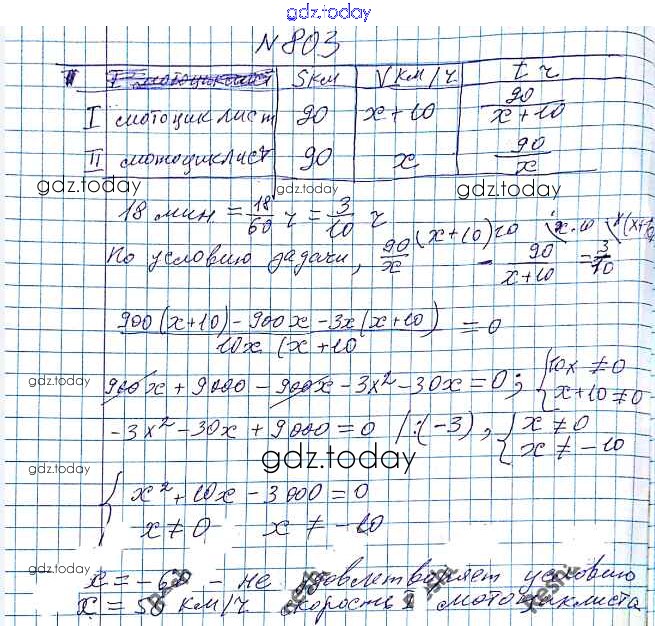 gdz.today
N 803
S км V км/ч t ч
I мотоциклист 90 x+10 90/(x+10)
II мотоциклист 90 x 90/x
gdz.today gdz.today gdz.today
18 мин = 18/60 ч = 3/10 ч
По условию задачи, 90/x - 90/(x+10) = 3/10
(900(x+10) - 900x - 3x(x+10))/(10x(x+10) = 0
gdz.today 900x + 9000 - 900x - 3x² - 30x = 0; { 10x ≠ 0
x+10 ≠ 0
-3x² - 30x + 9000 = 0 /:(-3), { x ≠ 0
x ≠ -10
gdz.today gdz.today
{ x² + 10x - 3000 = 0
x ≠ 0 x ≠ -10
gdz.today
x = -60 - не удовлетворяет условию
x = 50 км/ч скорость мотоциклиста